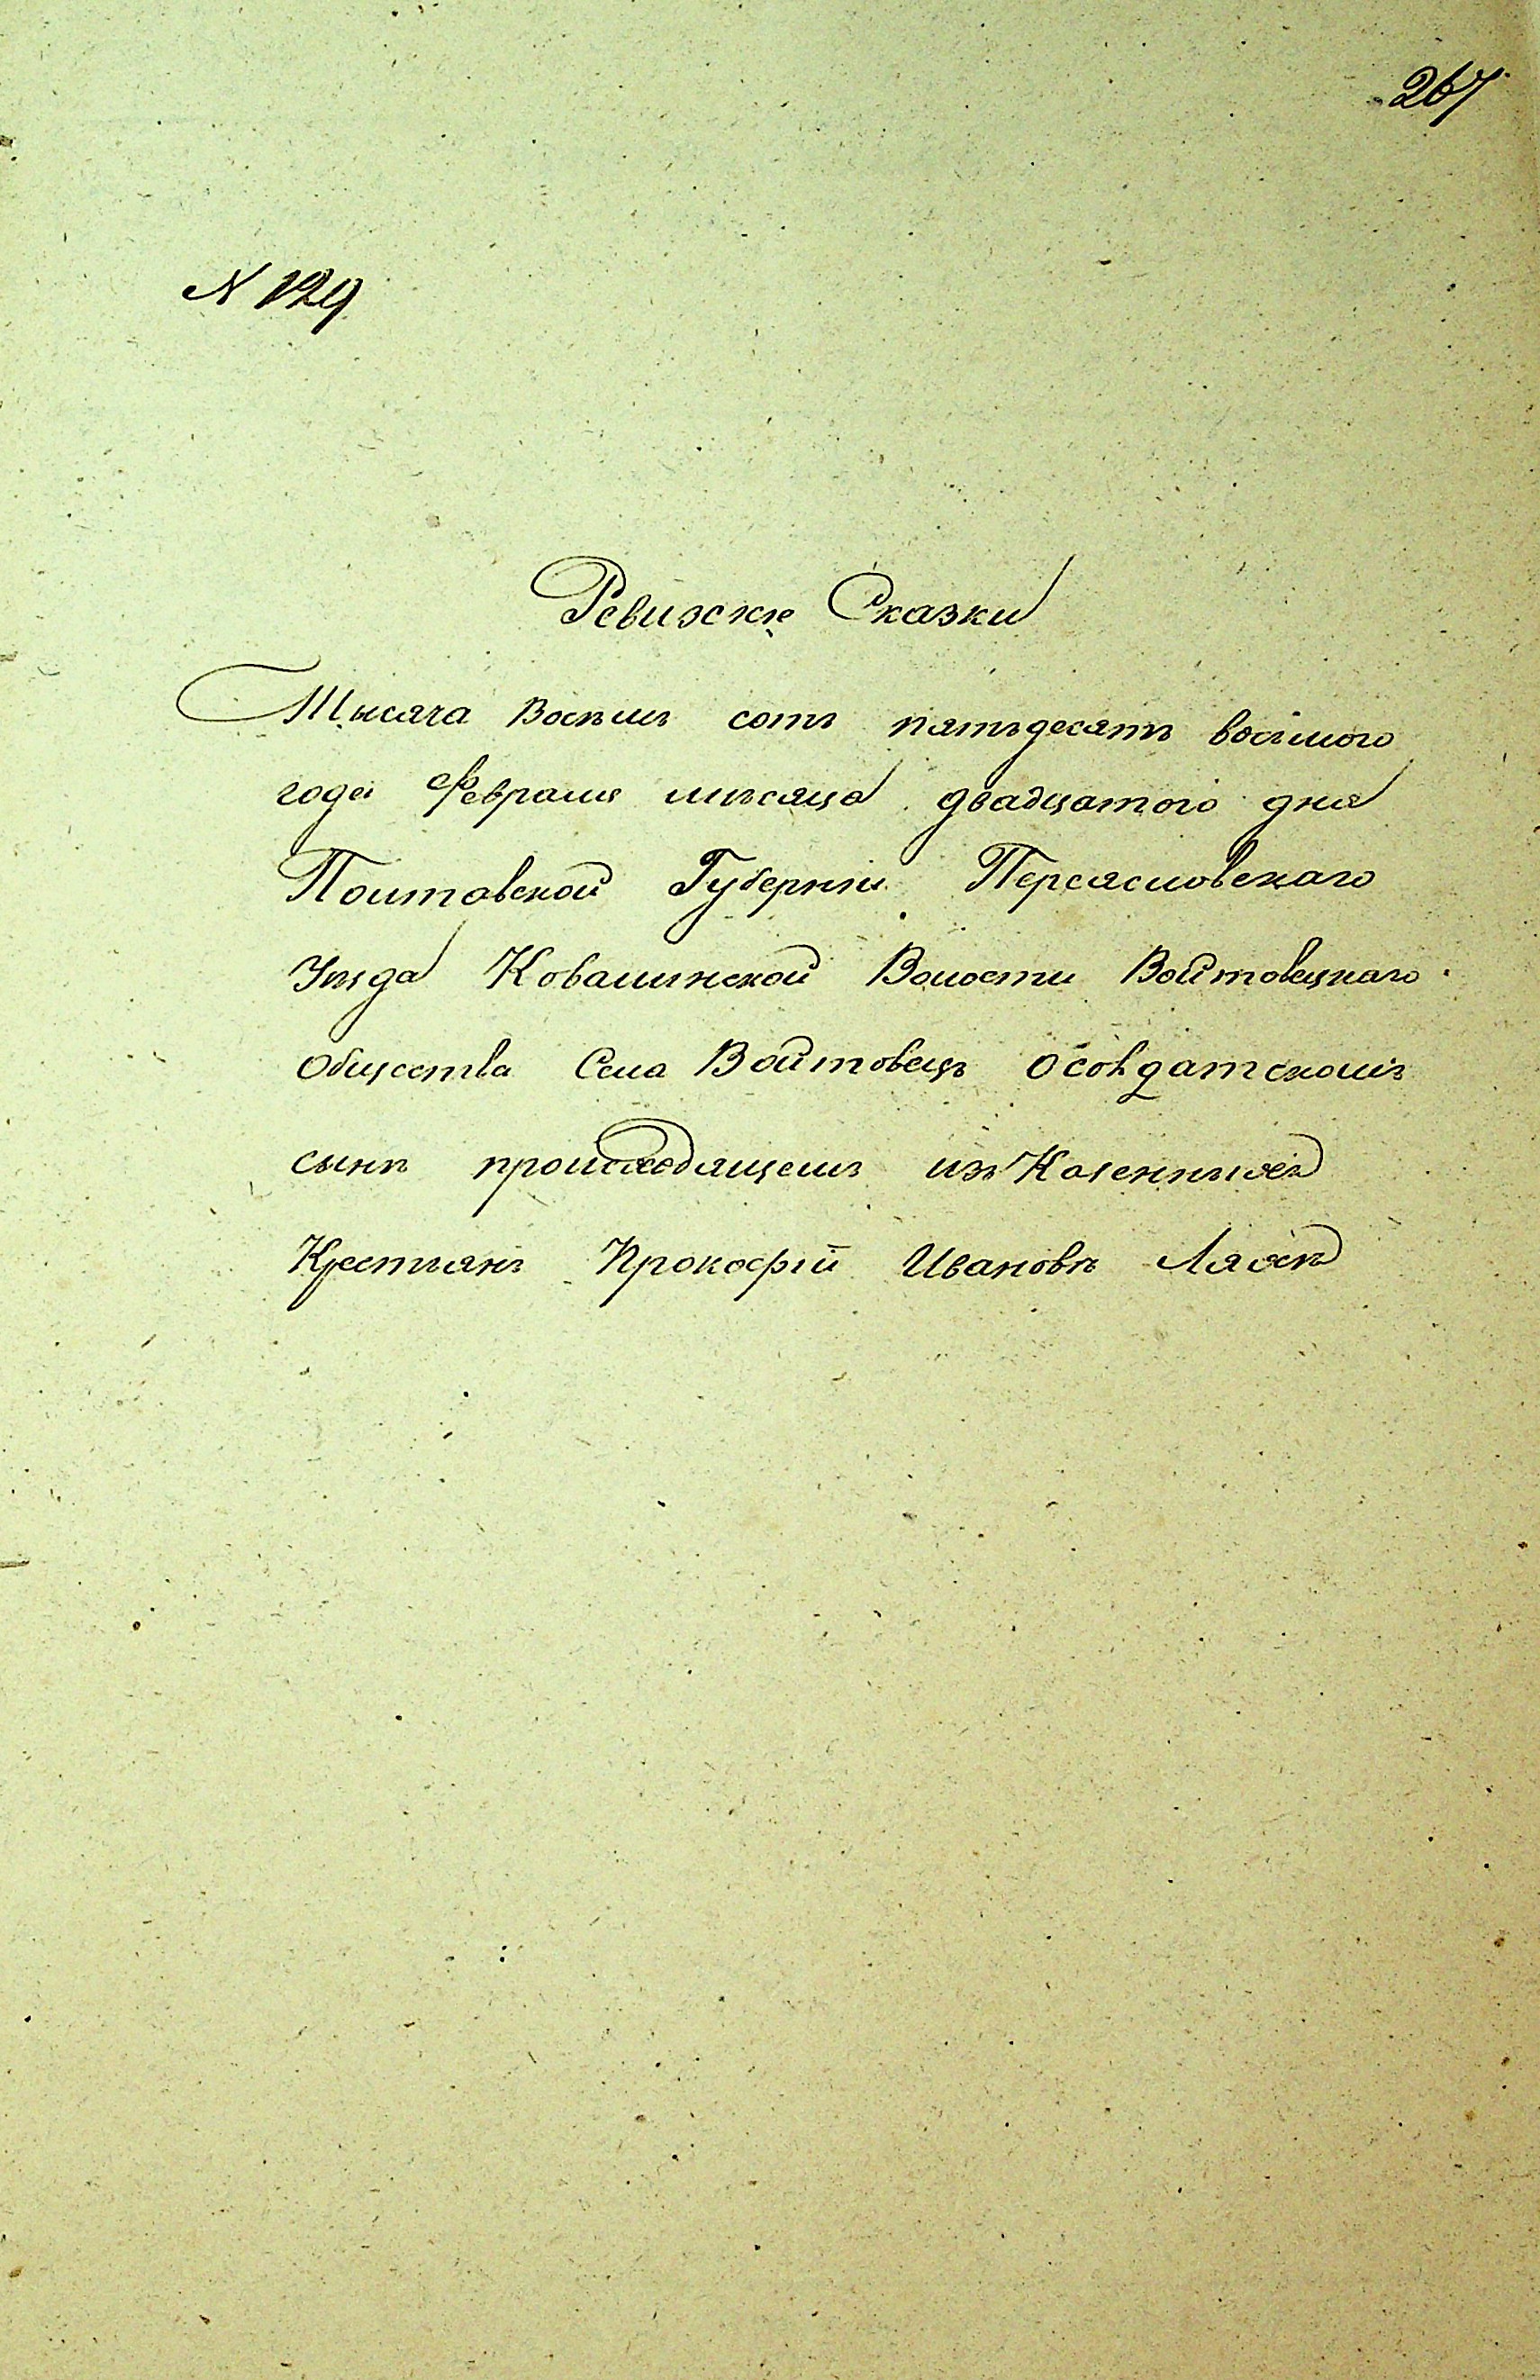 267
N 129
Ревизскіе Сказки
Тысяча Восемъ сотъ пятьдесятъ восьмого
года Февраля мѣсяца двадцатого дня
Полтавской Губерніи Переясловскаго
Уѣзда Ковалинской Волости Войтовецкаго
Общества Села Войтовецъ о солдатскомъ
сынѣ происходящемъ изъ Козенныхъ
Крестьянъ Прокофій Ивановъ Ляхъ